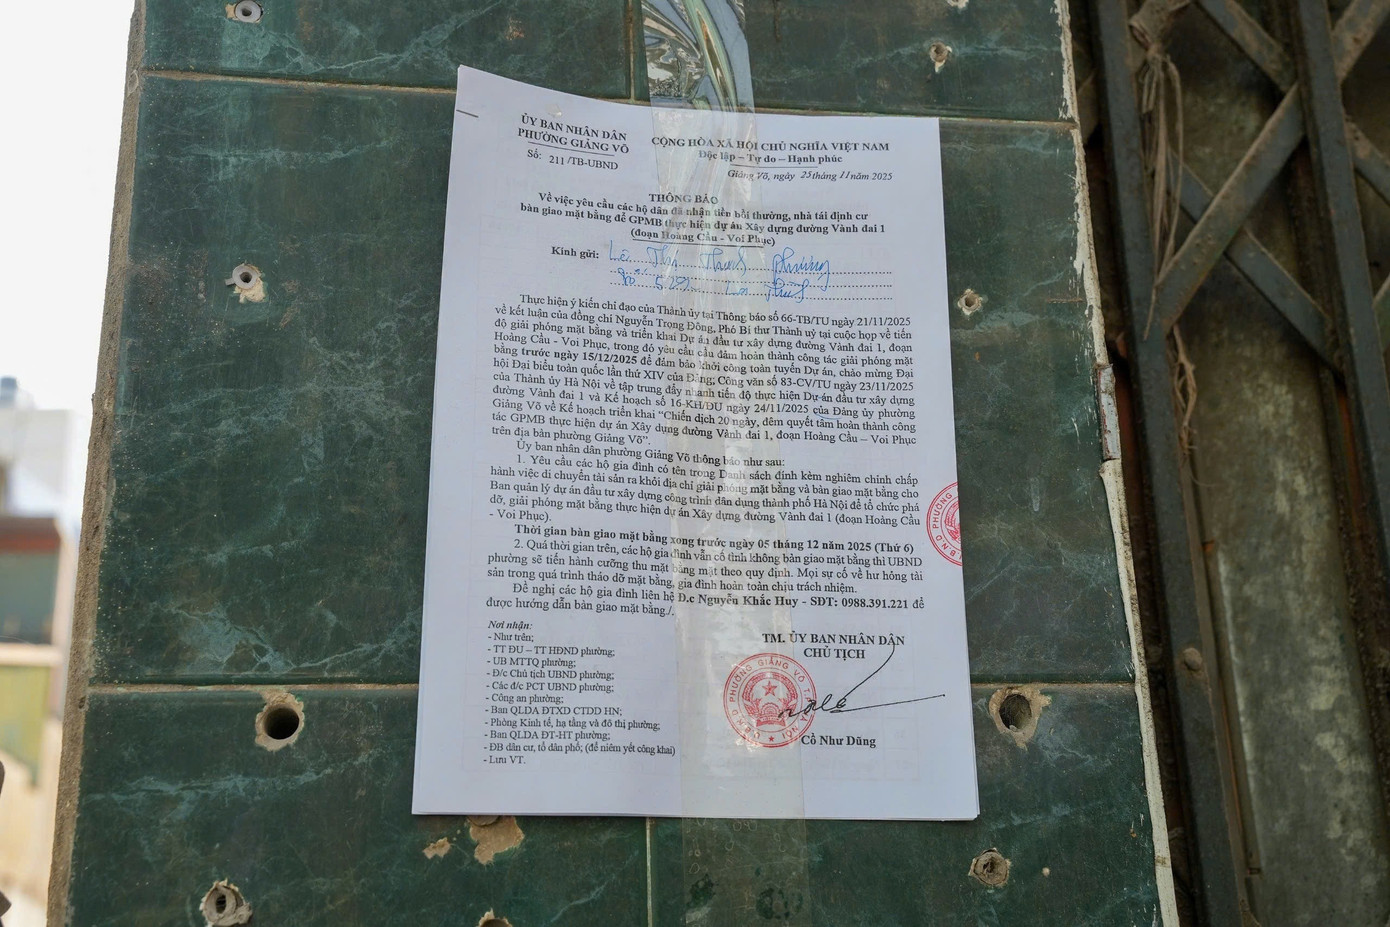 ỦY BAN NHÂN DÂN
PHƯỜNG GIẢNG VÕ
Số: 211 /TB-UBND
CỘNG HÒA XÃ HỘI CHỦ NGHĨA VIỆT NAM
Độc lập – Tự do – Hạnh phúc
Giảng Võ, ngày 25 tháng 11 năm 2025
THÔNG BÁO
Về việc yêu cầu các hộ dân đã nhận tiền bồi thường, nhà tái định cư
bàn giao mặt bằng để GPMB thực hiện dự án Xây dựng đường Vành đai 1
(đoạn Hoàng Cầu - Voi Phục)
Kính gửi: Lê Thị Thanh Phương
Thực hiện ý kiến chỉ đạo của Thành ủy tại Thông báo số 66-TB/TU ngày 21/11/2025
về kết luận của đồng chí Nguyễn Trọng Đông, Phó Bí thư Thành uỷ tại cuộc họp về tiến
độ giải phóng mặt bằng và triển khai Dự án đầu tư xây dựng đường Vành đai 1, đoạn
Hoàng Cầu - Voi Phục, trong đó yêu cầu cầu đảm hoàn thành công tác giải phóng mặt
bằng trước ngày 15/12/2025 để đảm bảo khởi công toàn tuyến Dự án, chào mừng Đại
hội Đại biểu toàn quốc lần thứ XIV của Đảng; Công văn số 83-CV/TU ngày 23/11/2025
của Thành ủy Hà Nội về tập trung đẩy nhanh tiến độ thực hiện Dự án đầu tư xây dựng
đường Vành đai 1 và Kế hoạch số 16-KH/ĐU ngày 24/11/2025 của Đảng ủy phường
Giảng Võ về Kế hoạch triển khai “Chiến dịch 20 ngày, đêm quyết tâm hoàn thành công
tác GPMB thực hiện dự án Xây dựng đường Vành đai 1, đoạn Hoàng Cầu – Voi Phục
trên địa bàn phường Giảng Võ”.
Ủy ban nhân dân phường Giảng Võ thông báo như sau:
1. Yêu cầu các hộ gia đình có tên trong Danh sách đính kèm nghiêm chỉnh chấp
hành việc di chuyển tài sản ra khỏi địa chỉ giải phóng mặt bằng và bàn giao mặt bằng cho
Ban quản lý dự án đầu tư xây dựng công trình dân dụng thành phố Hà Nội để tổ chức phá
dỡ, giải phóng mặt bằng thực hiện dự án Xây dựng đường Vành đai 1 (đoạn Hoàng Cầu
- Voi Phục).
Thời gian bàn giao mặt bằng xong trước ngày 05 tháng 12 năm 2025 (Thứ 6)
2. Quá thời gian trên, các hộ gia đình vẫn cố tình không bàn giao mặt bằng thì UBND
phường sẽ tiến hành cưỡng thu mặt bằng mặt theo quy định. Mọi sự cố về hư hỏng tài
sản trong quá trình tháo dỡ mặt bằng, gia đình hoàn toàn chịu trách nhiệm.
Đề nghị các hộ gia đình liên hệ Đ.c Nguyễn Khắc Huy - SĐT: 0988.391.221 để
được hướng dẫn bàn giao mặt bằng./.
Nơi nhận:
- Như trên;
- TT ĐU – TT HĐND phường;
- UB MTTQ phường;
- Đ/c Chủ tịch UBND phường;
- Các đ/c PCT UBND phường;
- Công an phường;
- Ban QLDA ĐTXD CTDD HN;
- Phòng Kinh tế, hạ tầng và đô thị phường;
- Ban QLDA ĐT-HT phường;
- ĐB dân cư, tổ dân phố; (để niêm yết công khai)
- Lưu VT.
TM. ỦY BAN NHÂN DÂN
CHỦ TỊCH
U.B.N.D PHƯỜNG GIẢNG VÕ T.P HÀ NỘI
Cồ Như Dũng
U.B.N.D PHƯỜNG